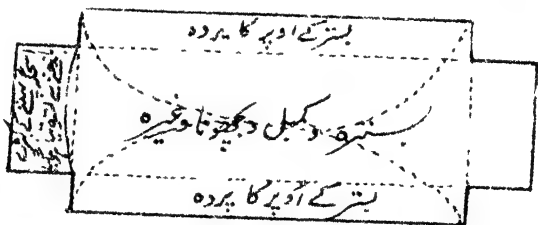 بستر کے اوپر کا پردہ
بسترہ و کمبل و بچھونا وغیرہ
بستر کے اوپر کا پردہ